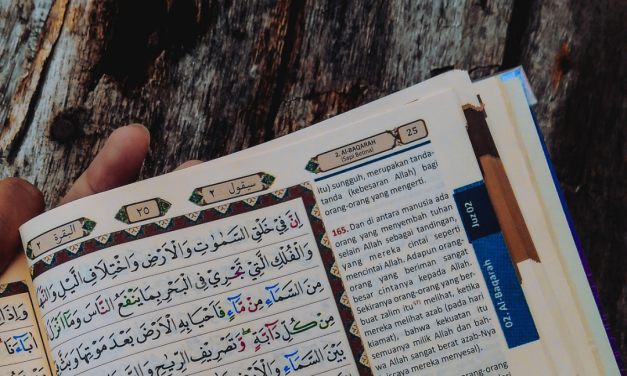 البقرة ٢
٢٥
سيقول ٢
إِنَّ فِي خَلْقِ السَّمٰوٰتِ وَالْاَرْضِ وَاخْتِلَافِ الَّيْلِ وَالنَّهَارِ
وَالْفُلْكِ الَّتِيْ تَجْرِيْ فِى الْبَحْرِ بِمَا يَنْفَعُ النَّاسَ وَمَآ اَنْزَلَ
مِنَ السَّمَاۤءِ مِنْ مَّاۤءٍ فَاَحْيَا بِهِ الْاَرْضَ بَعْدَ مَوْتِهَا وَبَثَّ
مِنْ كُلِّ دَاۤبَّةٍ وَّتَصْرِيْفِ الرِّيٰحِ
بَيْنَ السَّمَاۤءِ وَالْاَرْضِ
2. AL-BAQARAH
(Sapi Betina)
25
itu) sungguh, merupakan tanda-
tanda (kebesaran Allah) bagi
orang-orang yang mengerti.
165. Dan di antara manusia ada
orang yang menyembah tuhan
selain Allah sebagai tandingan,
yang mereka cintai seperti
mencintai Allah. Adapun orang-
orang yang beriman sangat
besar cintanya kepada Allah.
Sekiranya orang-orang yang ber-
buat zalim itu melihat, ketika
mereka melihat azab (pada hari
Kiamat), bahwa kekuatan itu
semuanya milik Allah dan bah-
wa Allah sangat berat azab-Nya
(niscaya mereka menyesal).
orang-orang
Juz 02
02. Al-Baqarah